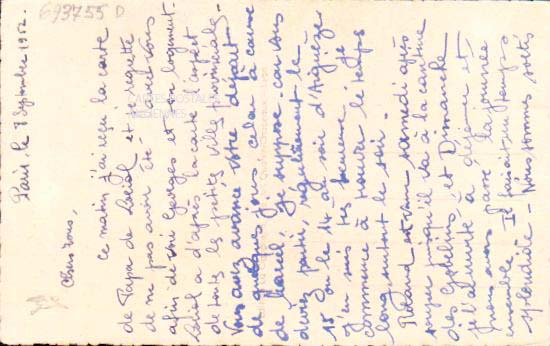 693755 D
Paris, le 8 Septembre 1952.
Chers tous,
Ce matin j'ai reçu la carte
de Papa de Soréal et je regrette
de ne pas avoir été avec vous
afin de voir Georges et son logement.
Soréal a d'après la carte l'aspect
de toutes les petites villes provinciales.
Vous avez avancé votre départ
de quelques jours, cela à cause
de Marcel. Je suppose, car vous
deviez partir, régulièrement le
15 ou le 14 au soir d'Aiguèze
J'en suis très heureuse, je
commence à trouver le temps
long surtout le soir.
Roland est venu samedi après
souper puisqu'il va à la cantine
des Gobelins et Dimanche
je l'ai invité à déjeuner et
nous avons passé la journée
ensemble. Il faisait un temps
splendide - Nous sommes sortis
CARTES POSTALES
ANCIENNES